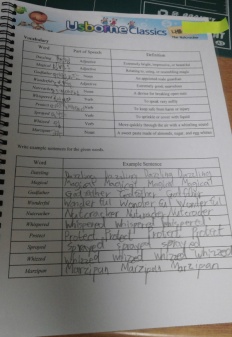 Usborne Classics
Vocabulary
Word Part of Speech Definition
Dazzling Adjective Extremely bright, impressive, or beautiful
Magical Adjective
Godfather Noun
Wonderful Adjective Extremely good; marvelous
Nutcracker Noun A device for cracking open nuts
Whispered Verb To speak very softly
Protect Verb To keep safe from harm or injury
Sprayed Verb
Whizzed Verb Move quickly through the air with a whistling sound
Marzipan Noun A sweet paste made of almonds, sugar, and egg whites
Write example sentences for the given words.
Word Example Sentence
Dazzling Dazzling Dazzling Dazzling Dazzling
Magical Magical Magical Magical Magical
Godfather Godfather Godfather Godfather
Wonderful Wonderful Wonderful Wonderful
Nutcracker
Whispered Whispered Whispered
Protect
Sprayed Sprayed Sprayed Sprayed
Whizzed Whizzed Whizzed Whizzed Whizzed
Marzipan Marzipan Marzipan Marzipan